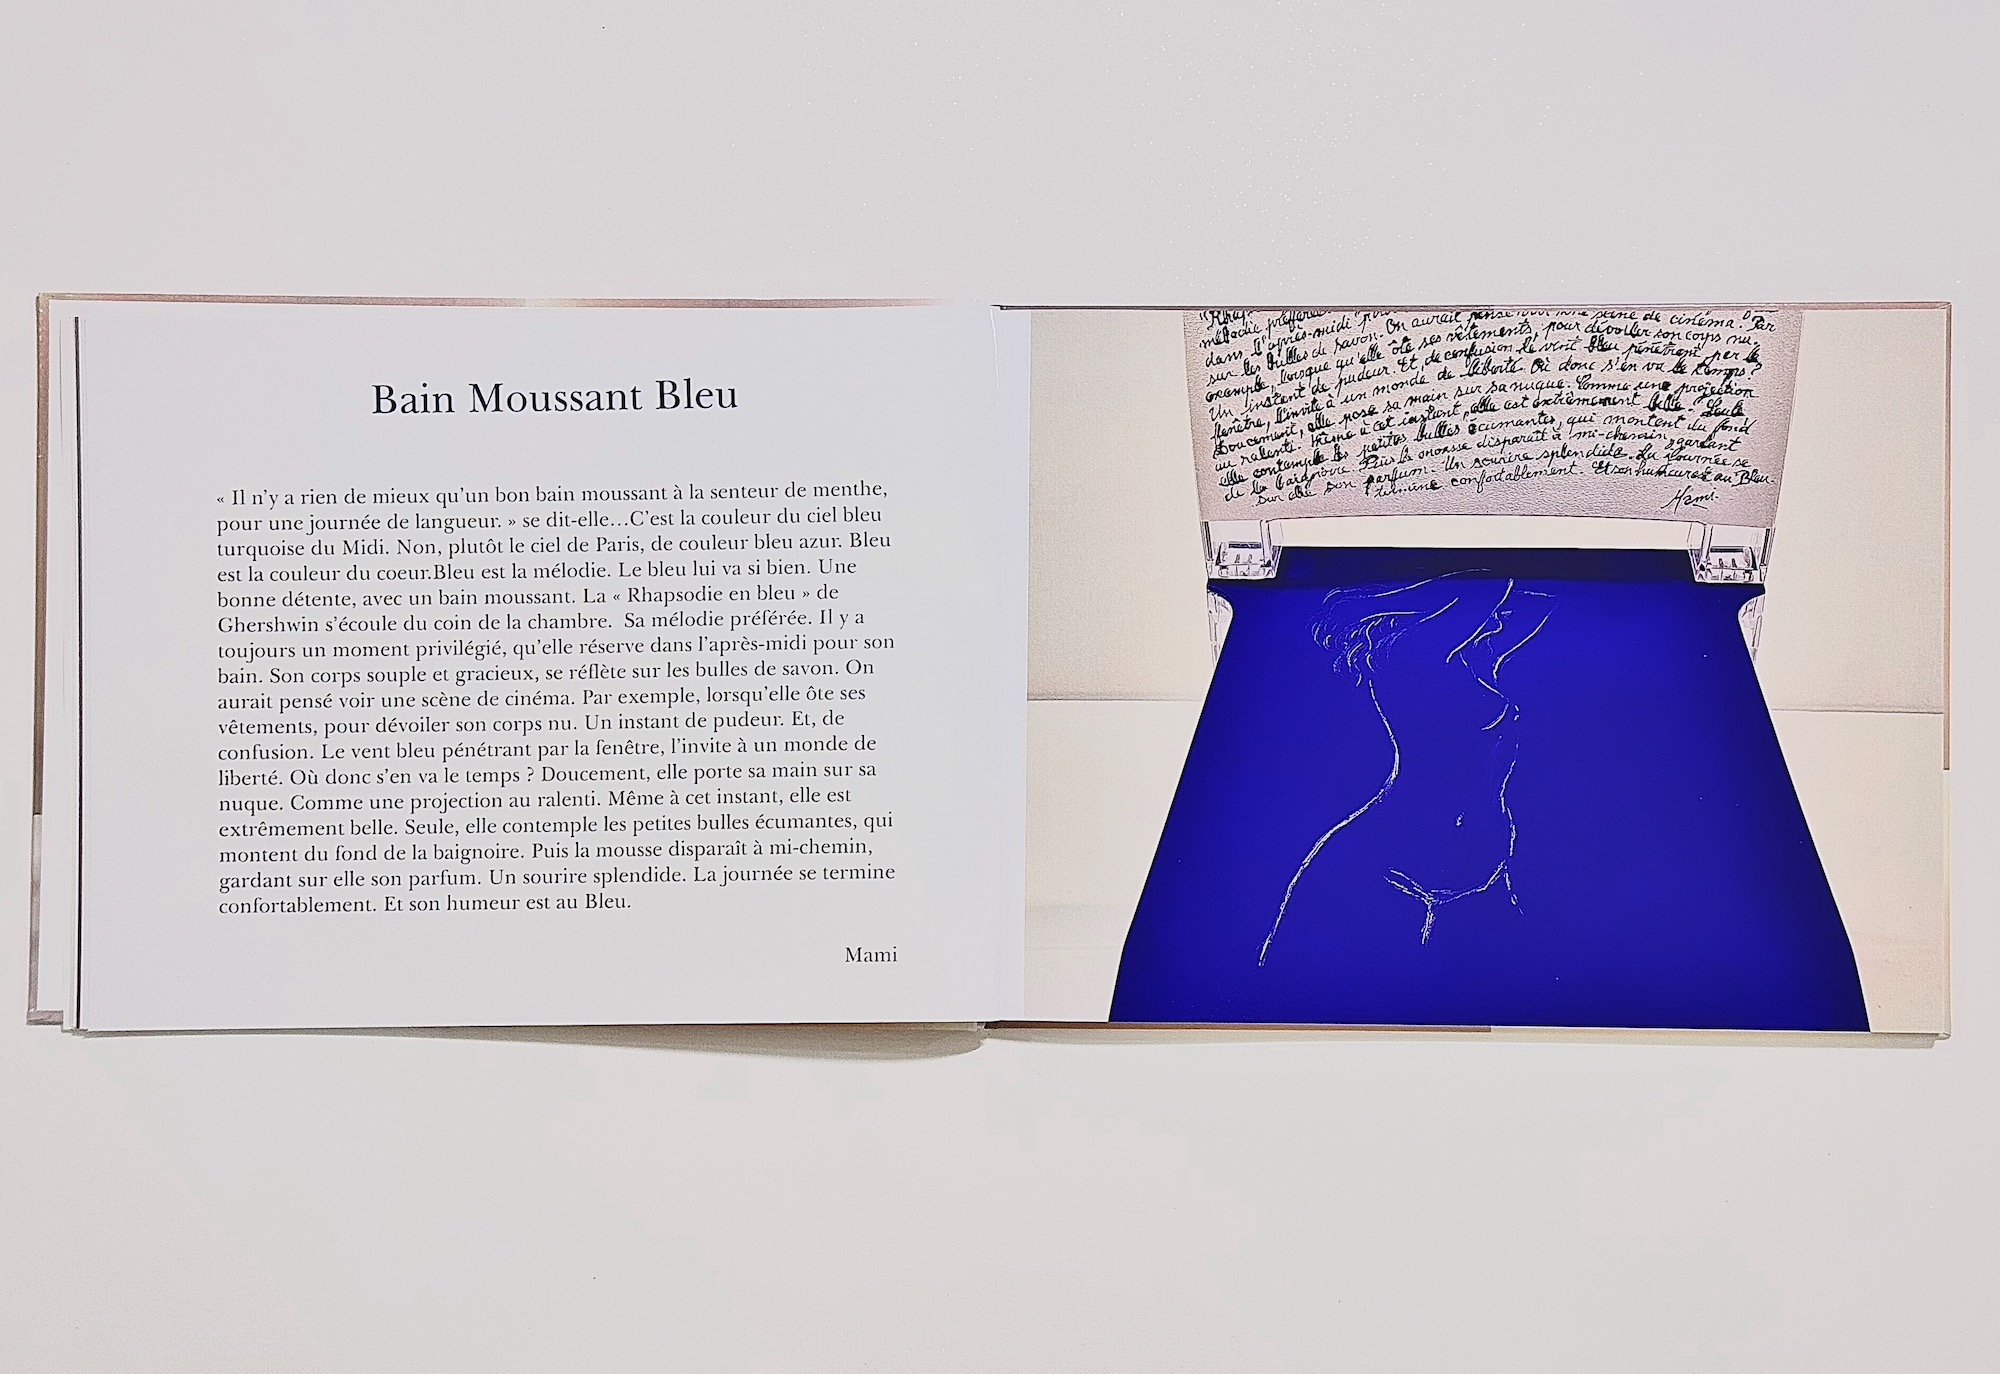 Bain Moussant Bleu
« Il n’y a rien de mieux qu’un bon bain moussant à la senteur de menthe,
pour une journée de langueur. » se dit-elle…C’est la couleur du ciel bleu
turquoise du Midi. Non, plutôt le ciel de Paris, de couleur bleu azur. Bleu
est la couleur du coeur.Bleu est la mélodie. Le bleu lui va si bien. Une
bonne détente, avec un bain moussant. La « Rhapsodie en bleu » de
Ghershwin s’écoule du coin de la chambre.  Sa mélodie préférée. Il y a
toujours un moment privilégié, qu’elle réserve dans l’après-midi pour son
bain. Son corps souple et gracieux, se réflète sur les bulles de savon. On
aurait pensé voir une scène de cinéma. Par exemple, lorsqu’elle ôte ses
vêtements, pour dévoiler son corps nu. Un instant de pudeur. Et, de
confusion. Le vent bleu pénétrant par la fenêtre, l’invite à un monde de
liberté. Où donc s’en va le temps ? Doucement, elle porte sa main sur sa
nuque. Comme une projection au ralenti. Même à cet instant, elle est
extrêmement belle. Seule, elle contemple les petites bulles écumantes, qui
montent du fond de la baignoire. Puis la mousse disparaît à mi-chemin,
gardant sur elle son parfum. Un sourire splendide. La journée se termine
confortablement. Et son humeur est au Bleu.
Mami
mélodie préférée.
dans l'après-midi
sur les bulles de savon. On aurait pensé voir une scène de cinéma. Par
exemple, lorsque qu'elle ôte ses vêtements, pour dévoiler son corps nu.
Un instant de pudeur. Et, de confusion le vent bleu pénétrant par la
fenêtre, l'invite à un monde de liberté. Où donc s'en va le temps?
Doucement, elle pose sa main sur sa nuque. Comme une projection
au ralenti. Même à cet instant, elle est extrêmement belle. Seule
elle contemple les petites bulles écumantes, qui montent du fond
de la baignoire. Puis la mousse disparaît à mi-chemin, gardant
sur elle son parfum. Un sourire splendide. La journée se
termine confortablement. Et son humeur est au Bleu.
Mami.